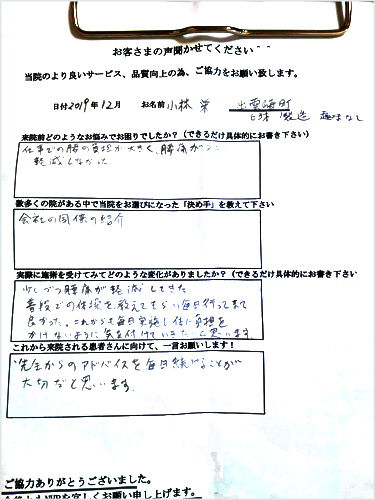 お客さまの声聞かせてください^^
当院のより良いサービス、品質向上の為、ご協力をお願い致します。
日付2019年12月 お名前 小林 栄 出雲崎町
製造 趣味なし
来院前どのようなお悩みでお困りでしたか？（できるだけ具体的にお書き下さい）
仕事での腰の負担が大きく、腰痛が
軽減しなかった
数多くの院がある中で当院をお選びになった「決め手」を教えて下さい
会社の同僚の紹介
実際に施術を受けてみてどのような変化がありましたか？（できるだけ具体的にお書き下さい
少しづつ腰痛が軽減してきた
普段での体操を教えてもらい毎日行って来て
良かった。これからも毎日実施し体に負担を
かけないように気を付けていきたいと思います.
これから来院される患者さんに向けて、一言お願いします！
先生からのアドバイスを毎日続けることが
大切だと思います.
ご協力ありがとうございました。
宜しくお願い申し上げます。